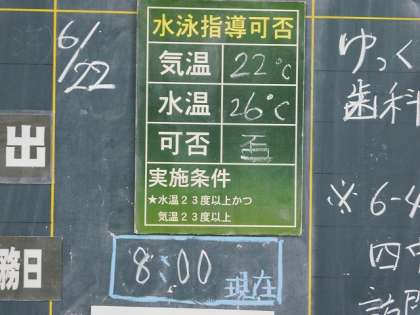 6/22
水泳指導可否
気温 22℃
水温 26℃
可否 否
実施条件
★水温23度以上かつ
気温23度以上
8:00 現在
出
務日
ゆっく
歯科
※ 6-4
四
訪問